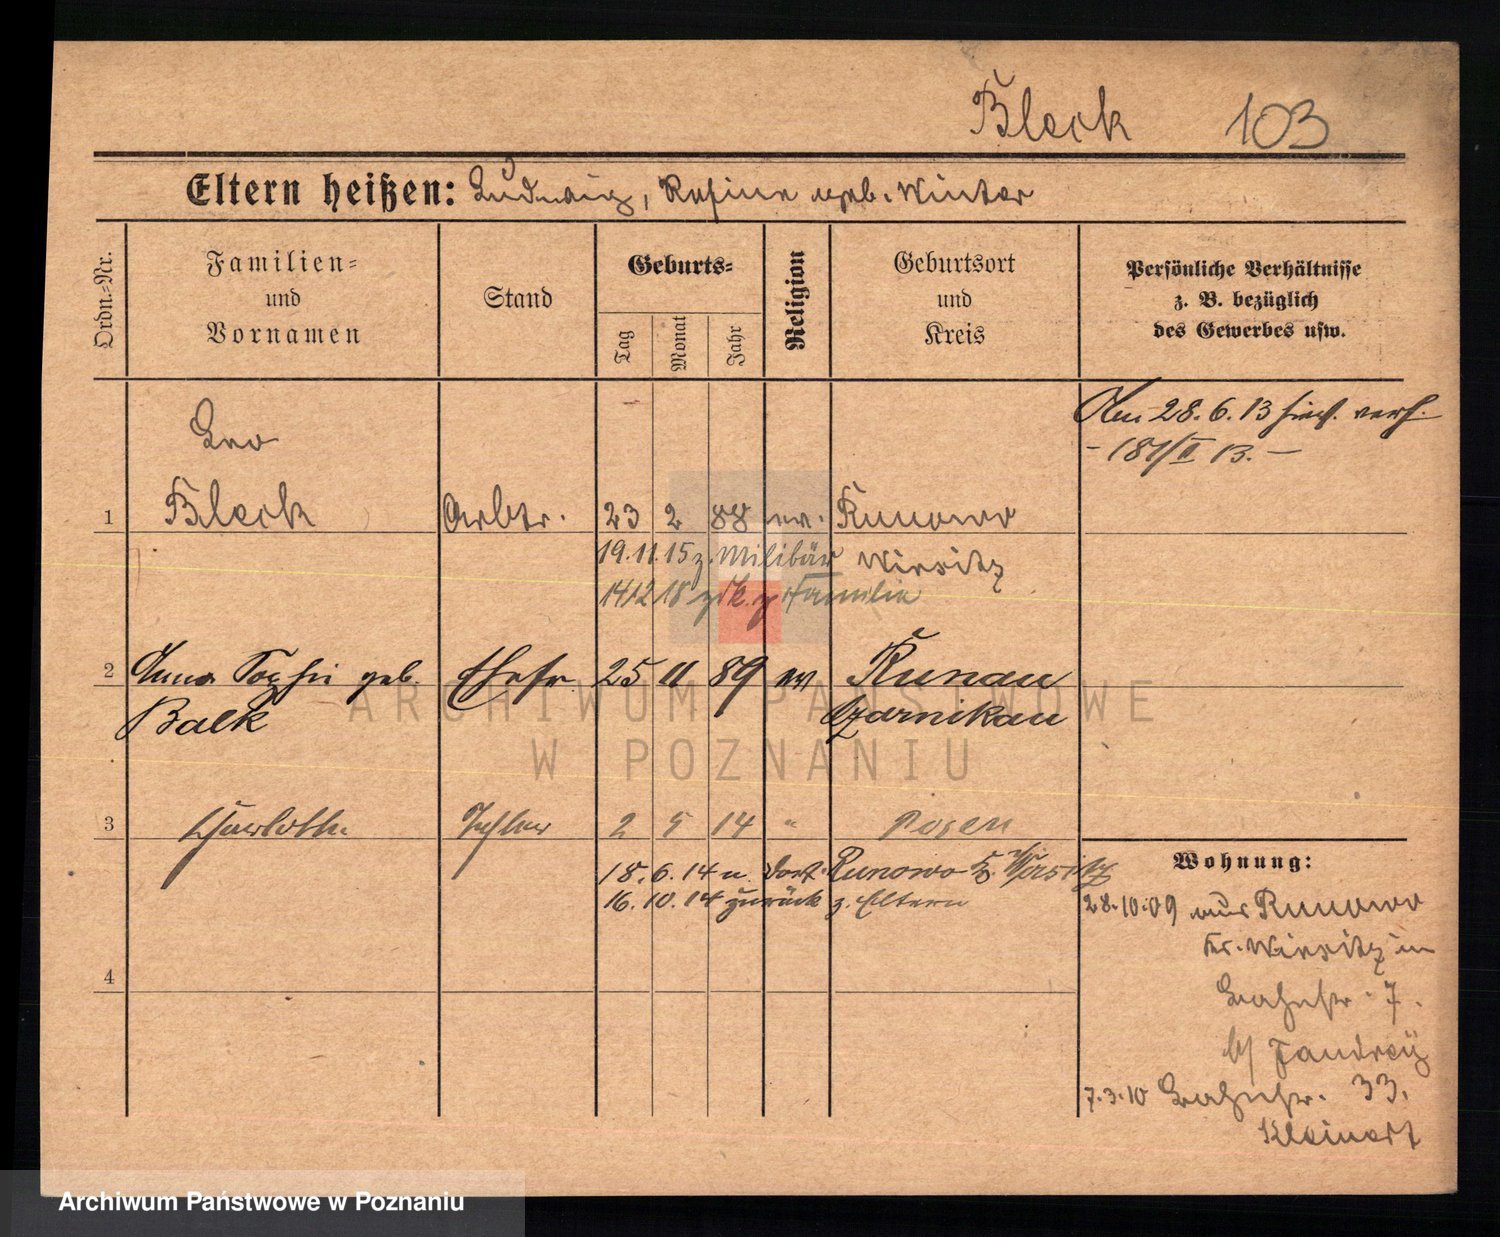 Bleck 103
Eltern heißen: Ludwig, Rosine geb. Winter
Ordn.-Nr.
Familien-
und
Vornamen
Stand
Geburts-
Tag
Monat
Jahr
Religion
Geburtsort
und
Kreis
Persönliche Verhältnisse
z. B. bezüglich
des Gewerbes usw.
Am 28.6.13 hies. verh.
- 181/II 13. -
Leo
1 Bleck Arbtr. 23 2 88 ev. Runowo
19.11.15 z. Militär Wirsitz
14 12 18 zrk. z Familie
2 Anna geb. Ehefr 25 11 89 ev Runau
Balk Czarnikau
3 Charlotte 2 5 14 " Posen
18.6.14 n. Runowo K. Wirsitz
16.10.14 zurück z. Eltern
4
Wohnung:
28.10.09 aus Runowo
Kr. Wirsitz in
7.
b/ Jandrey
7.3.10 33.
Kleinert
ARCHIWUM PAŃSTWOWE
W POZNANIU
Archiwum Państwowe w Poznaniu